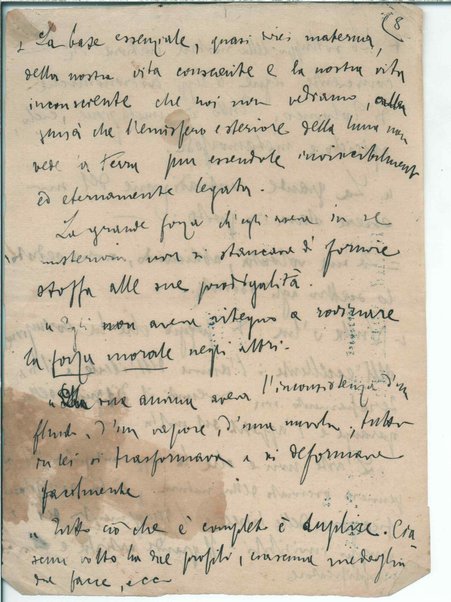 8
" La base essenziale, quasi direi materna,
della nostra vita cosciente è la nostra vita
incosciente che noi non vediamo, nella
guisa che l'emisfero esteriore della luna non
vede la Terra pur essendole invincibilmente
ed eternamente legata.
La grande forza ch'egli aveva in sé
misteriosa non si stancava di fornire
stoffa alle sue prodigalità.
" Egli non aveva ritegno a rovinare
la forza morale negli altri.
" La sua anima aveva l'inconsistenza d'un
fluido, d'un vapore, d'una nuvola; tutto
in lei si trasformava e si deformava
facilmente
" Tutto ciò che è completo è duplice. Cia
scun volto ha due profili, ciascuna medaglia
due facce, ecc